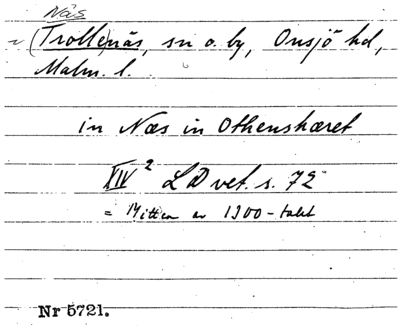 Näs
~ (Trolle)näs, sn o. by, Onsjö hd,
Malm. l.
in Næs in Othenshæret
XIV 2 LD vet. s. 72
= Mitten av 1300-talet
Nr 5721.